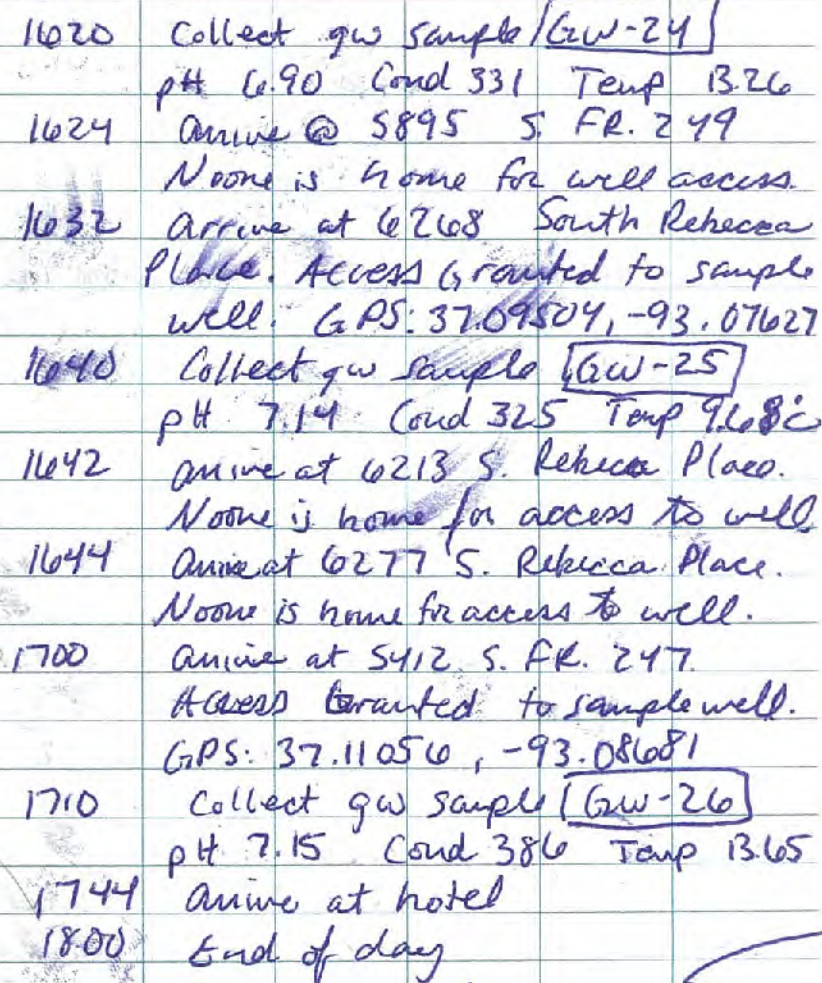 1620 Collect gw sample GW-24
pH 6.90 Cond 331 Temp 13.26
1624 arrive @ 5895 S. FR. 249
Noone is home for well access.
1632 arrive at 6268 South Rebecca
Place. Access Granted to sample
well. GPS: 37.09504, -93.07627
1640 Collect gw sample GW-25
pH 7.14 Cond 325 Temp 9.68°C
1642 arrive at 6213 S. Rebecca Place.
Noone is home for access to well
1644 arrive at 6277 S. Rebecca Place.
Noone is home for access to well.
1700 arrive at 5412 S. FR. 247.
Access Granted to sample well.
GPS: 37.11056, -93.08681
1710 Collect gw sample GW-26
pH 7.15 Cond 386 Temp 13.65
1744 arrive at hotel
1800 End of day